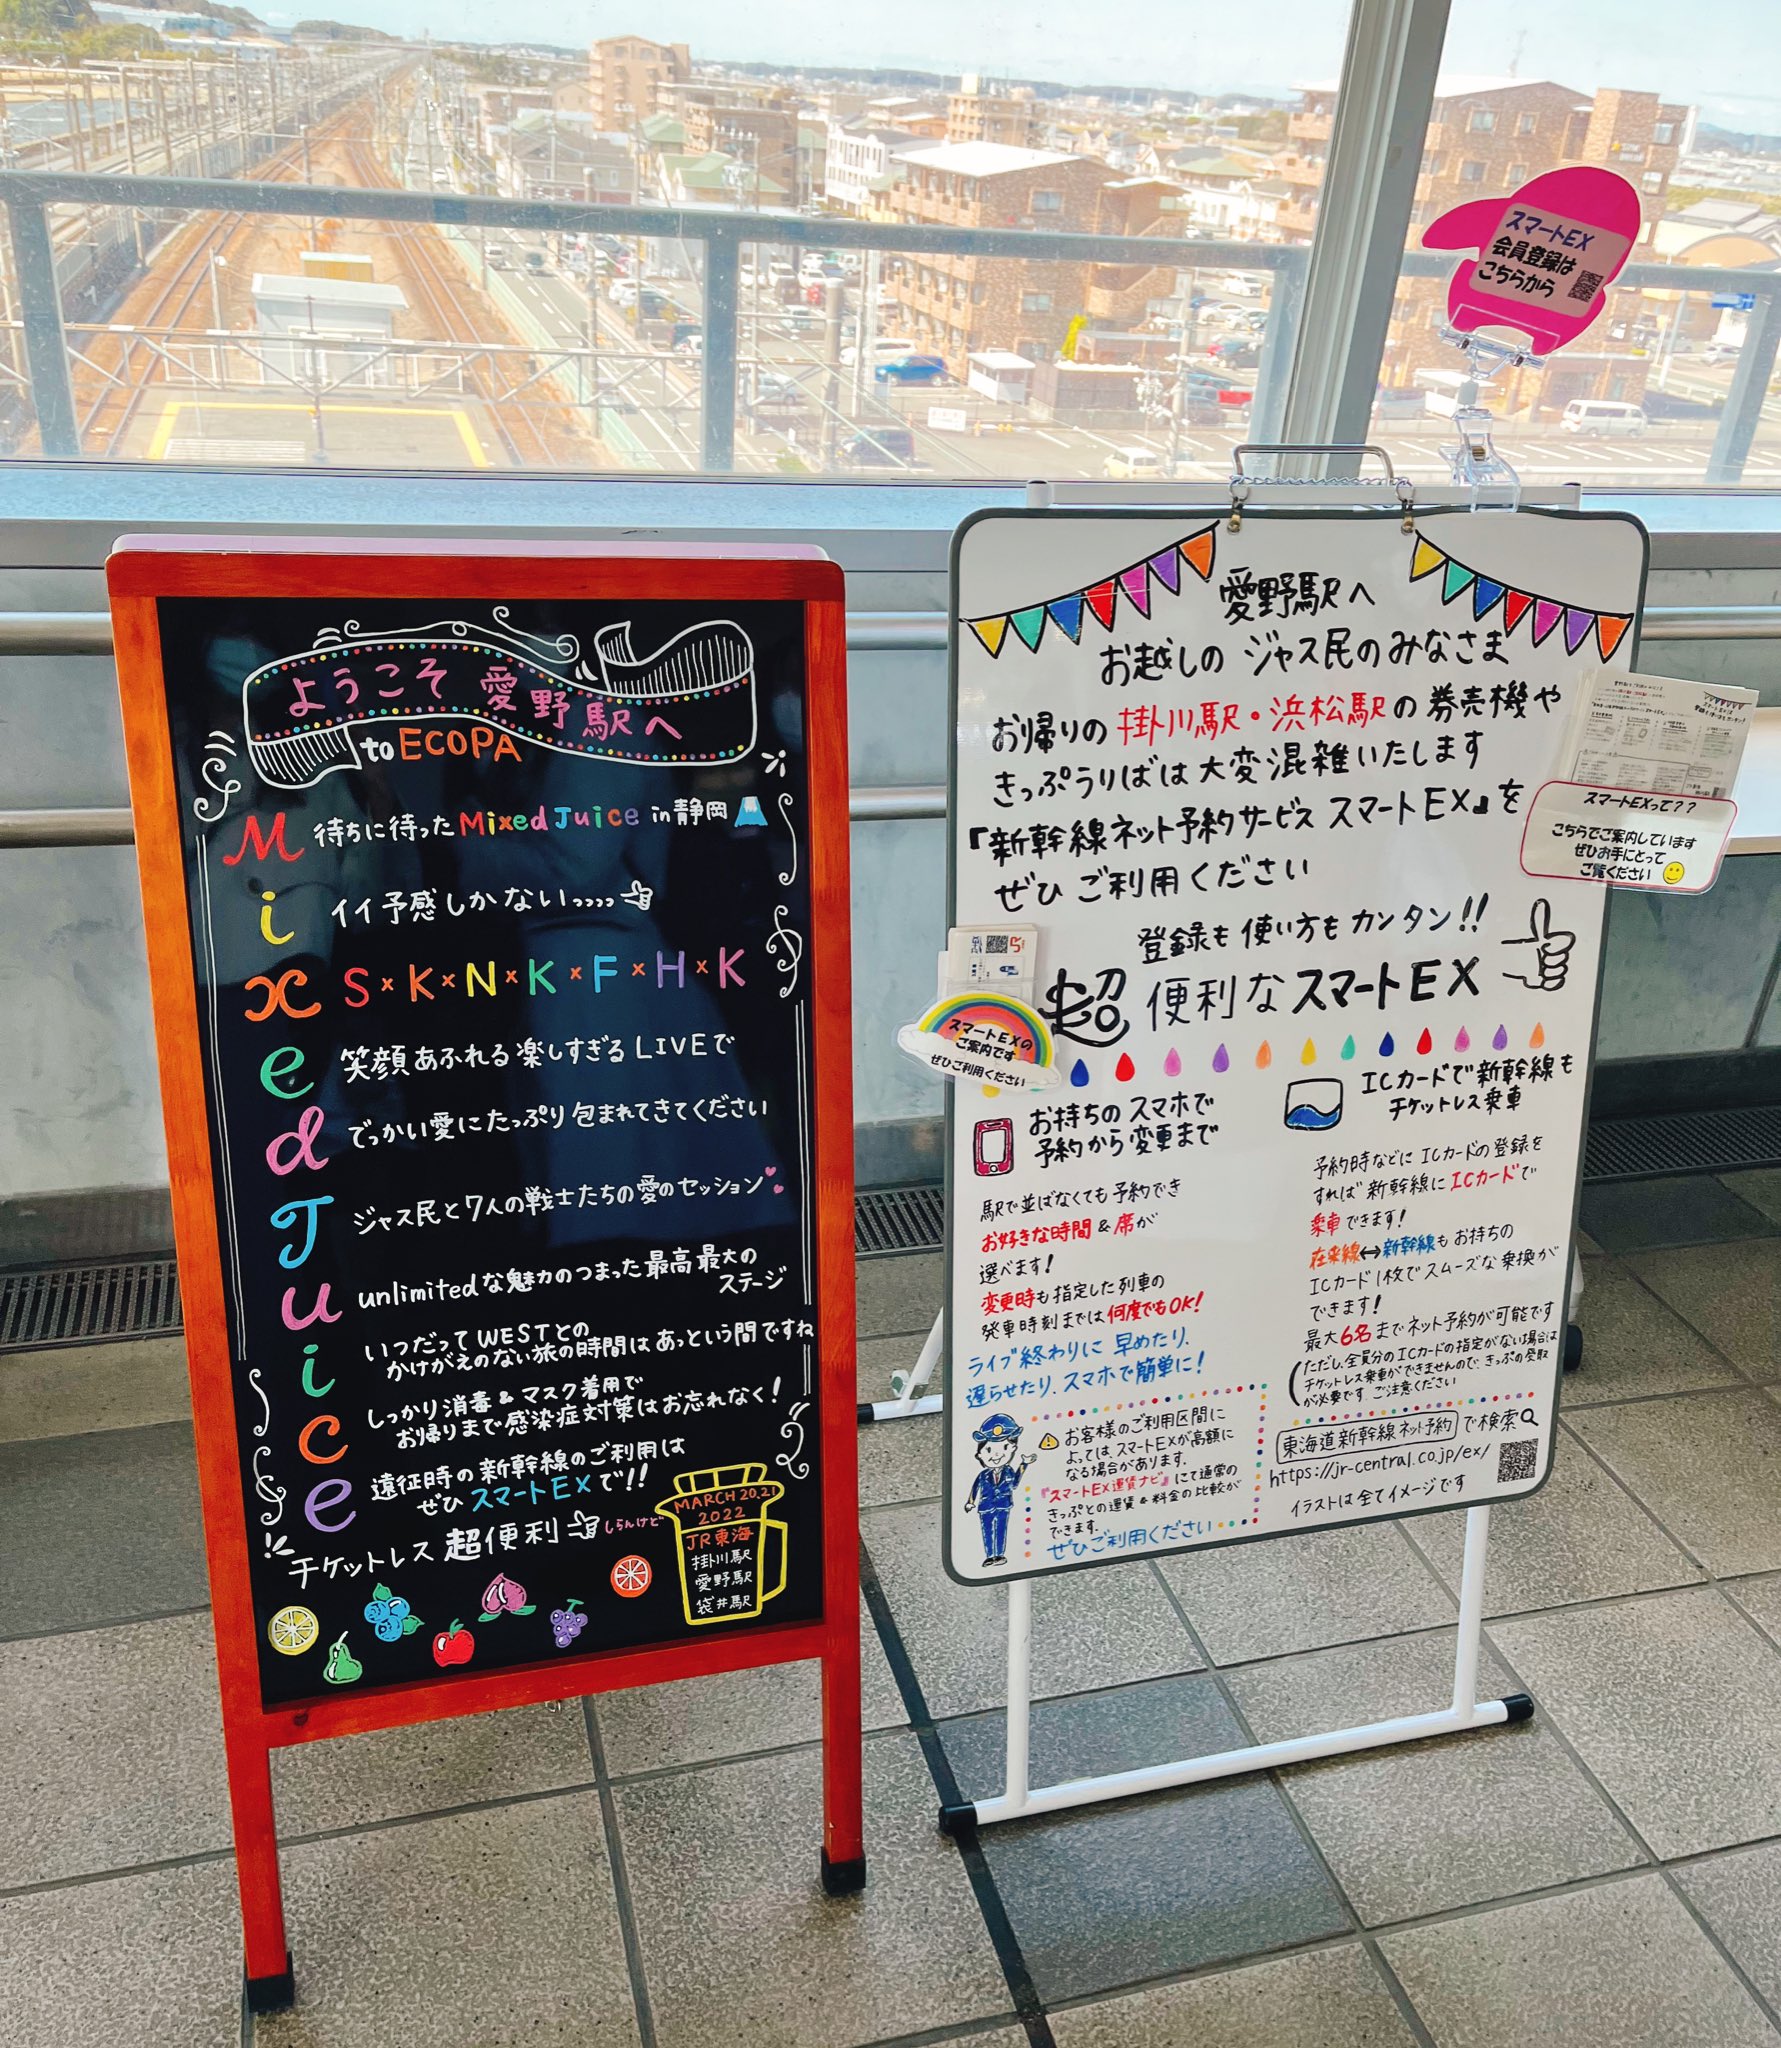 ようこそ 愛野駅へ
to ECOPA
M 待ちに待った Mixed Juice in 静岡
i イイ予感しかないっっっっ
x S×K×N×K×F×H×K
e 笑顔あふれる楽しすぎるLIVEで
d でっかい愛にたっぷり包まれてきてください
J ジャス民と7人の戦士たちの愛のセッション
u unlimitedな魅力のつまった最高最大の
ステージ
i いつだってWESTとの
かけがえのない旅の時間はあっという間ですね
c しっかり消毒&マスク着用で
お帰りまで感染症対策はお忘れなく!
e 遠征時の新幹線のご利用は
ぜひスマートEXで!!
チケットレス超便利 しらんけど
MARCH 20.21
2022
JR東海
掛川駅
愛野駅
袋井駅
スマートEX
会員登録は
こちらから
愛野駅へ
お越しの ジャス民のみなさま
お帰りの 掛川駅・浜松駅の券売機や
きっぷうりばは大変混雑いたします
『新幹線ネット予約サービス スマートEX』を
ぜひ ご利用ください
登録も使い方もカンタン!!
超便利なスマートEX
スマートEXって??
こちらでご案内しています
ぜひお手にとって
ご覧ください
スマートEXの
ご案内です
ぜひご利用ください
お持ちのスマホで
予約から変更まで
駅で並ばなくても予約でき
お好きな時間&席が
選べます!
変更時も指定した列車の
発車時刻までは何度でもOK!
ライブ終わりに 早めたり、
遅らせたり、スマホで簡単に!
お客様のご利用区間に
よっては、スマートEXが高額に
なる場合があります。
『スマートEX運賃ナビ』にて通常の
きっぷとの運賃&料金の比較が
できます。
ぜひご利用ください
ICカードで新幹線も
チケットレス乗車
予約時などにICカードの登録を
すれば新幹線にICカードで
乗車できます!
在来線↔新幹線もお持ちの
ICカード1枚でスムーズな乗換が
できます!
最大6名までネット予約が可能です
(ただし、全員分のICカードの指定がない場合は
チケットレス乗車ができませんので、きっぷの受取
が必要です。ご注意ください
東海道新幹線 ネット予約 で検索
https://jr-central.co.jp/ex/
イラストは全てイメージです